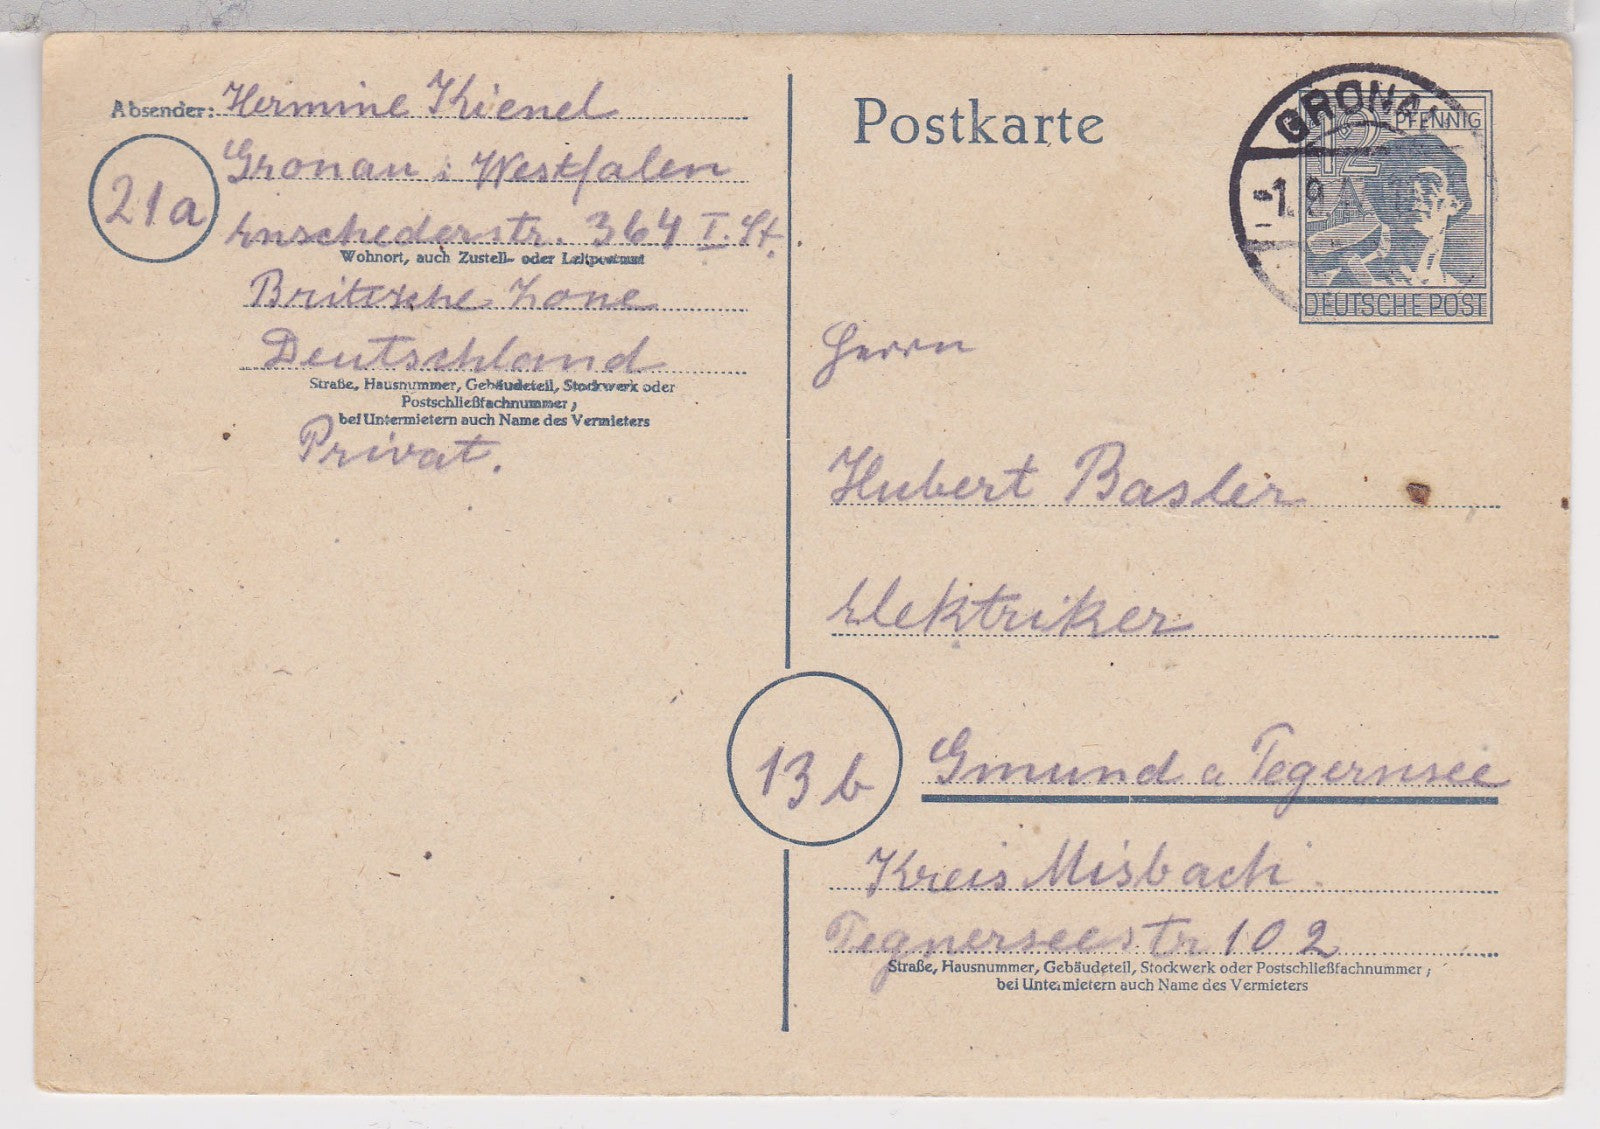 Absender: Hermine Kienel
21a
Gronau i Westfalen
Enschederstr. 364 I. St.
Wohnort, auch Zustell- oder Leitpostamt
Britische Zone
Deutschland
Straße, Hausnummer, Gebäudeteil, Stockwerk oder
Postschließfachnummer;
bei Untermietern auch Name des Vermieters
Privat.
Postkarte
GRONAU
-1.9.
12 PFENNIG
DEUTSCHE POST
Herrn
Hubert Basler
Elektriker
13b
Gmund a Tegernsee
Kreis Misbach
Tegnerseestr 102
Straße, Hausnummer, Gebäudeteil, Stockwerk oder Postschließfachnummer;
bei Untermietern auch Name des Vermieters